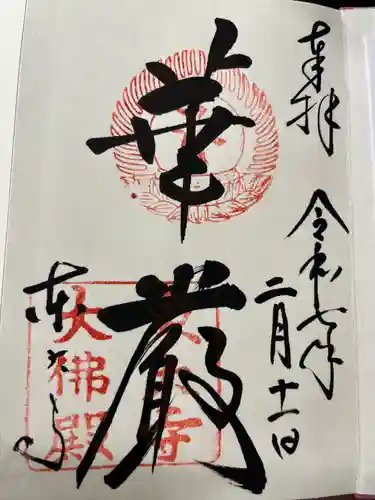 奉拝
令和七年
二月十一日
華
厳
東大寺
東大寺
大佛殿